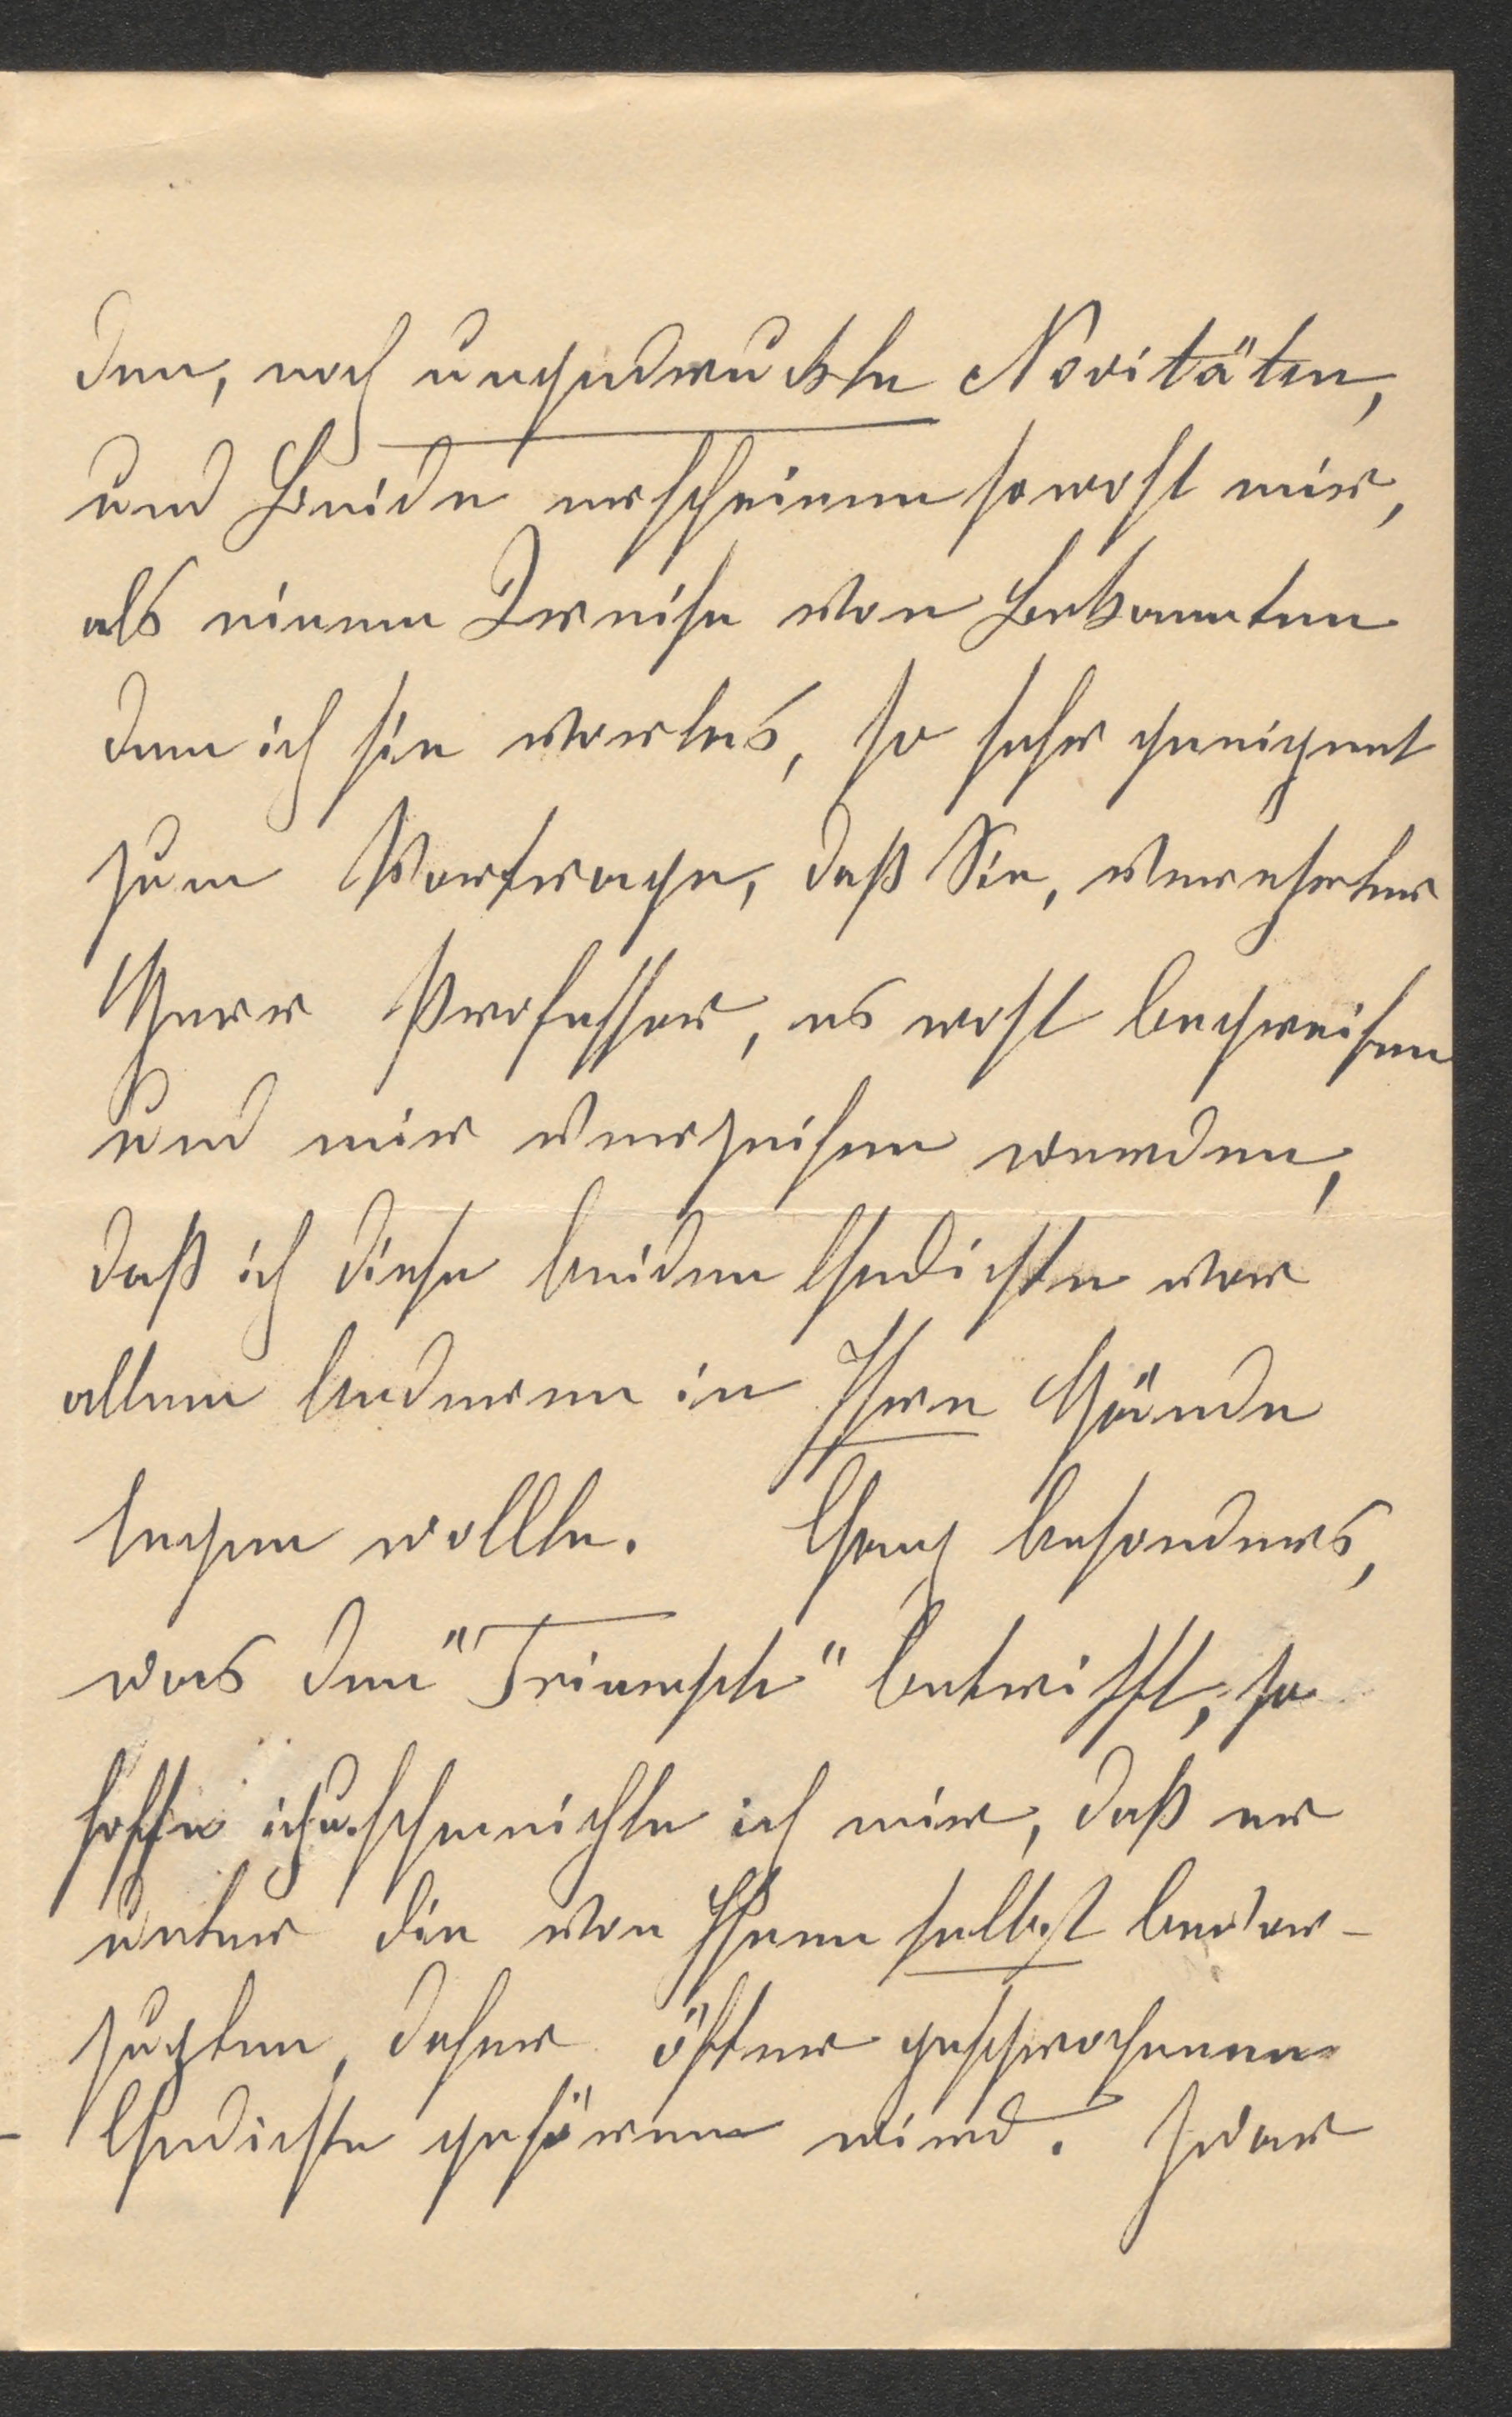 den, noch ungedruckte Novitäten,
und Beide erscheinen sowohl mir,
als einem Kreise von Bekannten
dem ich sie vorlas, so sehr geeignet
zum Vortrage, daß Sie, verehrter
Herr Professor, es wohl begreifen
und mir verzeihen werden,
daß ich diese beiden Gedichte vor
allem Anderen in Ihre Hände
legen wollte. Ganz besonders,
was den "Triumph" betrifft, so
hoffe ich u. schmeichle ich mir, daß er
unter die von Ihnen selbst bevor-
zugten, daher öfter gesprochenen
Gedichte gehören wird. Zwar